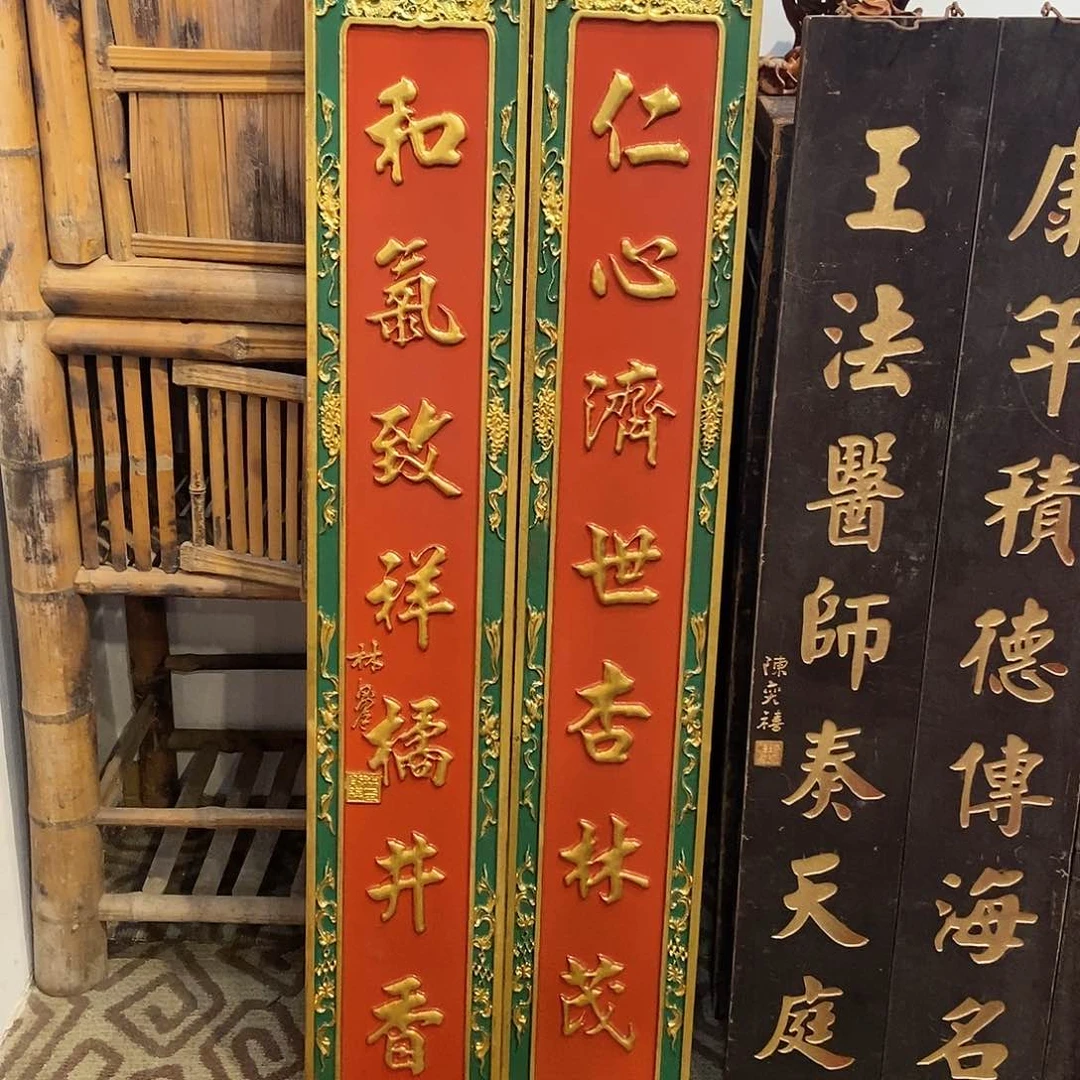 康年積德傳海名
王法醫師奏天庭
陳奕禧
仁心濟世杏林茂
和氣致祥橘井香
林